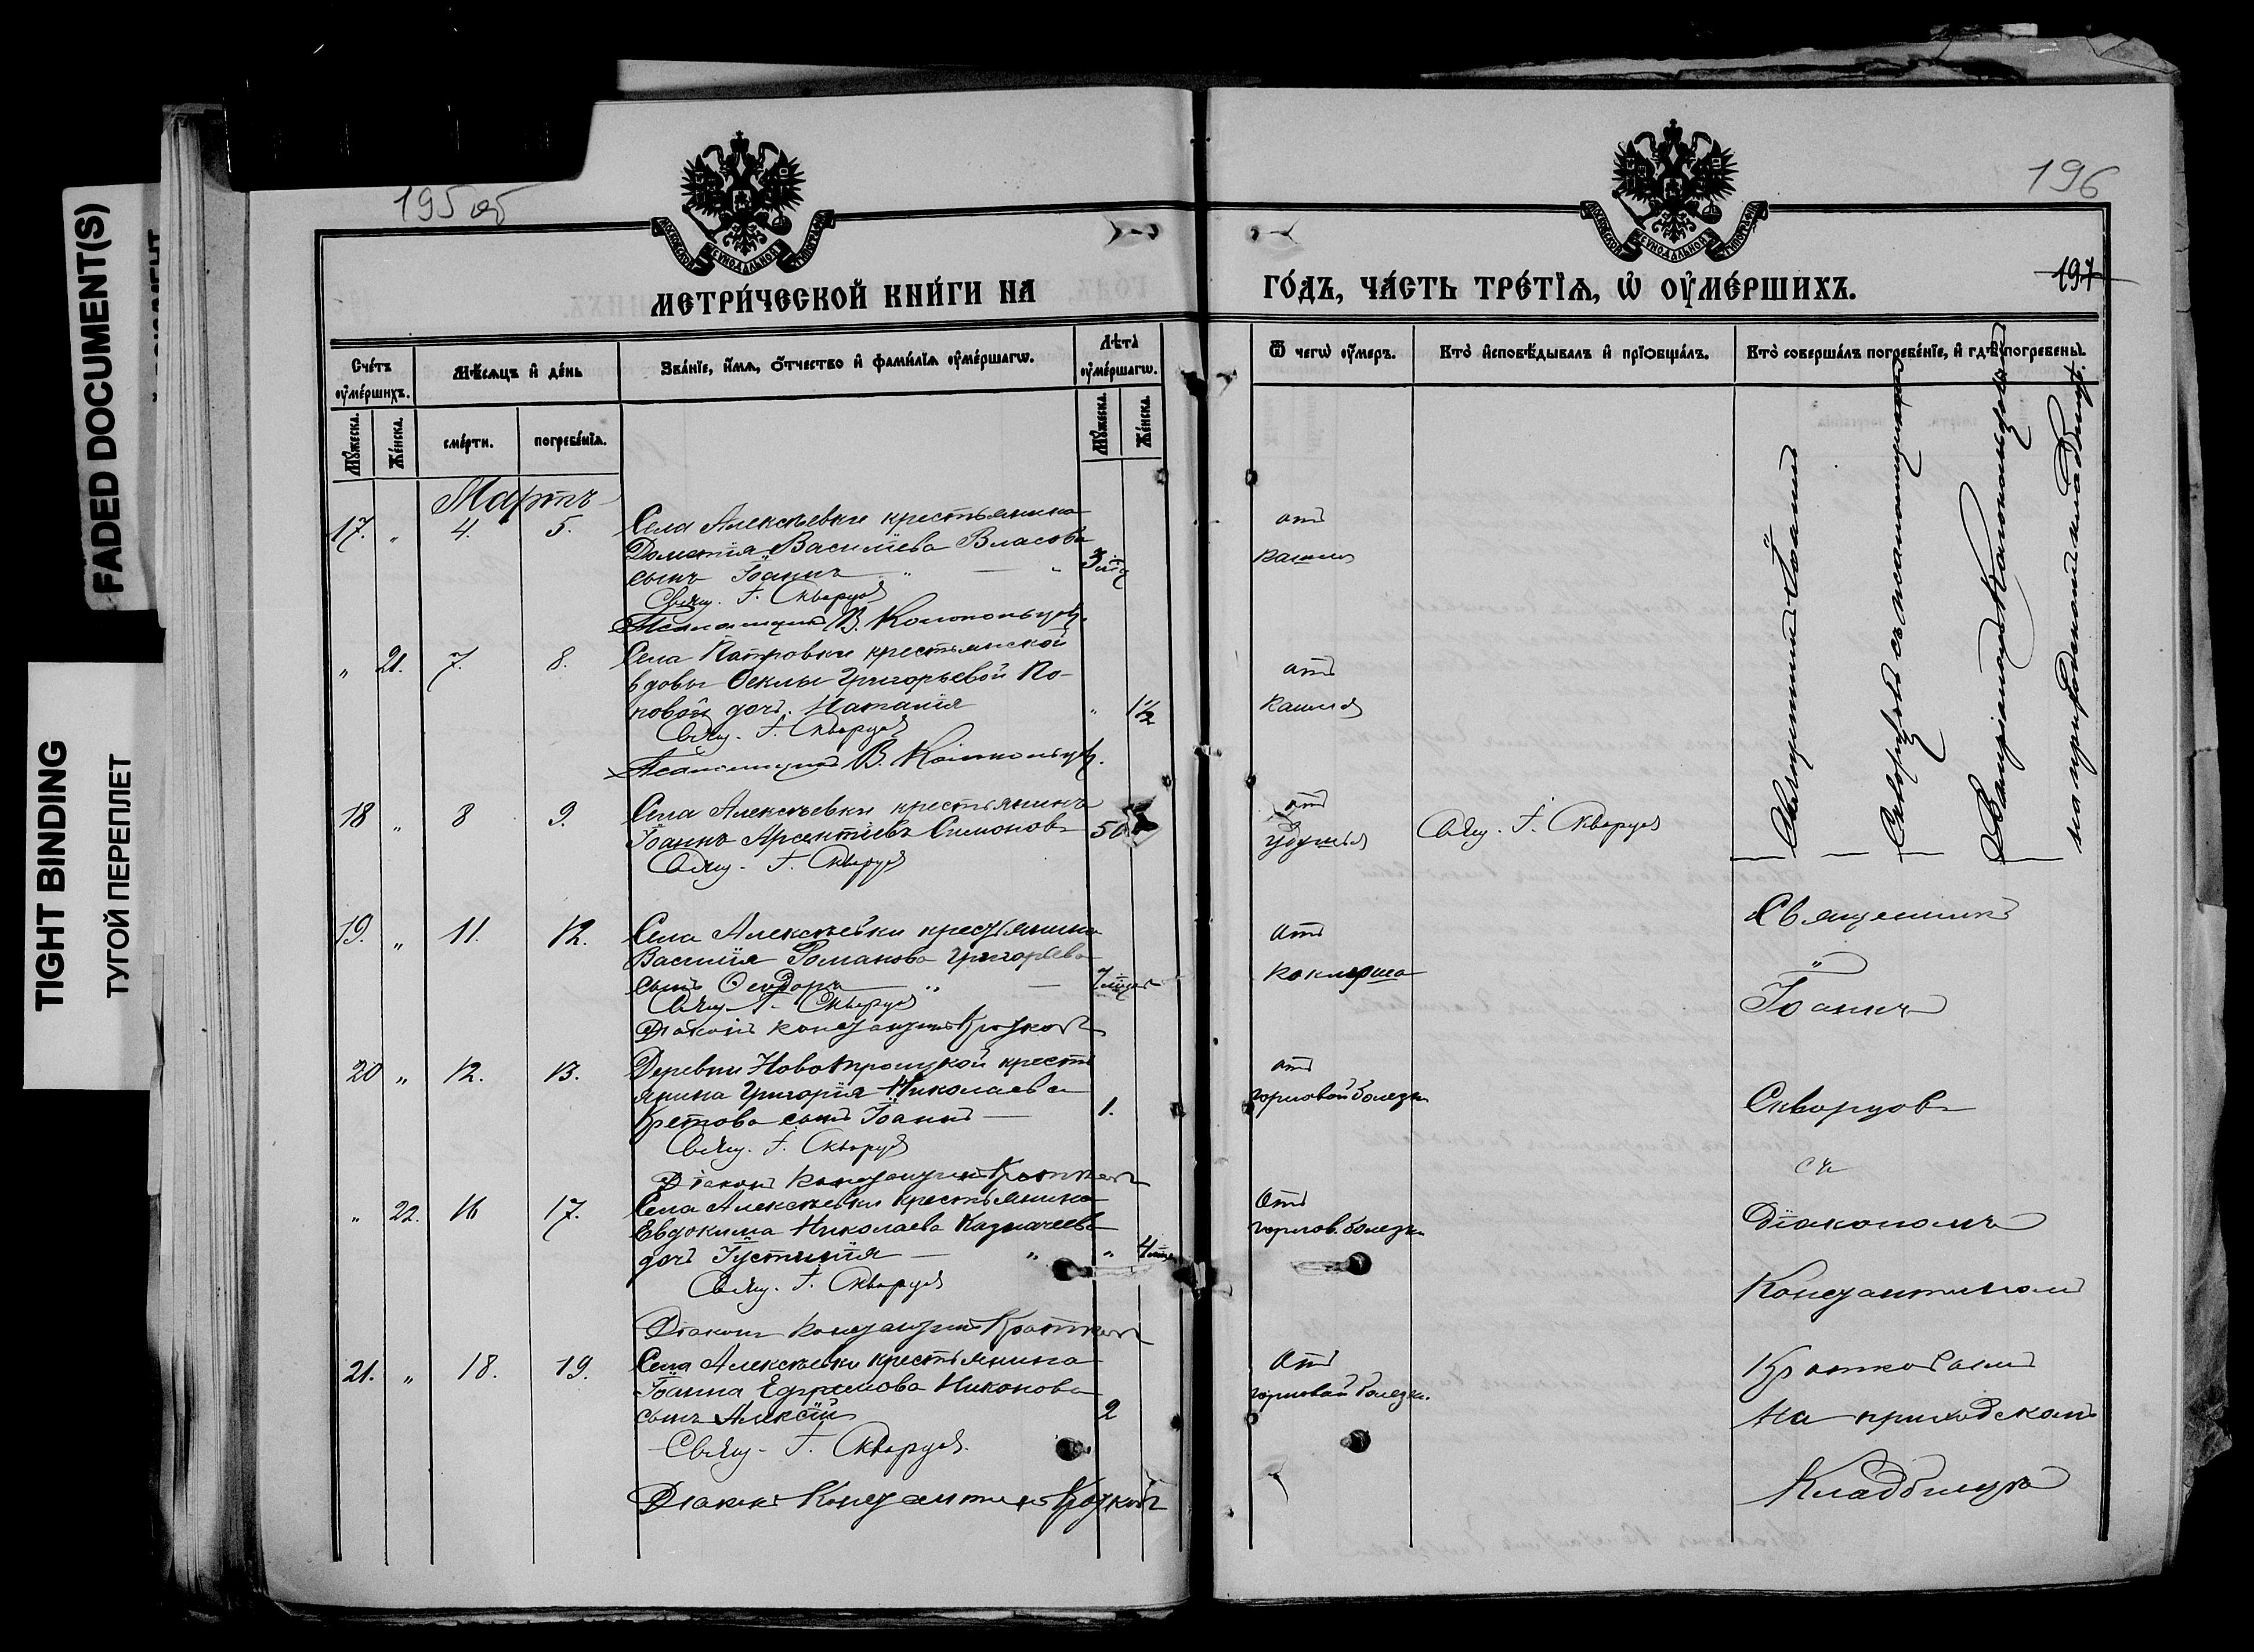 FADED DOCUMENT(S)
TIGHT BINDING
ТУГОЙ ПЕРЕПЛЕТ
195 об
196
197
МОСКОВСКОЙ СѴНОДАЛЬНОЙ ТИПОГРАФІИ
МОСКОВСКОЙ СѴНОДАЛЬНОЙ ТИПОГРАФІИ
МЕТРИ́ЧЕСКОЙ КНИ́ГИ НА
ГО́ДЪ, ЧА́СТЬ ТРЕ́ТЇѦ, Ѡ҆ ОУ҆МЕ́РШИХЪ.
Сче́тъ оу҆ме́ршихъ.
Мѣ́сяцъ и҆ де́нь
Зва́нїе, и҆́мѧ, ѻ҆́тчество и҆ фами́лїѧ оу҆ме́ршагѡ.
Лѣ́та оу҆ме́ршагѡ.
Ѿ чегѡ̀ оу҆́меръ.
Кто̀ и҆сповѣ́дывалъ и҆ прїѻбща́лъ.
Кто̀ соверша́лъ погребе́нїе, и҆ гдѣ̀ погребены̀.
Мꙋ́жеска.
Же́нска.
сме́рти.
погребе́нїѧ.
Мꙋ́жеска.
Же́нска.
Мартъ
17. " 4. 5. Села Алексѣевки крестьянина
Дометія Василіева Власова
сынъ Іоаннъ " — "
Свящ. І. Скворцов
Псаломщикъ В. Колокольцев.
отъ
кашля
" 21. 7. 8. Села Патровки крестьянской
вдовы Ѳеклы Григорьевой По-
повой дочь Наталія " 1½
Свящ. І. Скворцов
Псаломщикъ В. Колокольцев.
отъ
кашля
18 " 8 9. Села Алексѣевки крестьянинъ
Іоаннъ Арсентіевъ Симоновъ 50
Свящ. І. Скворцов
отъ
удушья
Свящ. І. Скворцов
Священникъ Іоаннъ
Скворцовъ съ псаломщикомъ
Колокольцевымъ
на приходскомъ кладбищѣ.
19. " 11. 12. Села Алексѣевки крестьянина
Василія Романова Григорьева
сынъ Ѳеодоръ " —
Свящ. І. Скворцов
Діаконъ Константинъ Кротковъ
отъ
коклюша
20 " 12. 13. Деревни Новотроицкой кресть
янина Григорія Николаева
Кретова сынъ Іоаннъ — 1.
Свящ. І. Скворцов
Діаконъ Константинъ Кротковъ
отъ
горловой болезн
" 22. 16 17. Села Алексѣевки крестьянина
Евдокима Николаева Казначеева
дочь Іустинія — " "
Свящ. І. Скворцов
Діаконъ Константинъ Кротковъ
Отъ
горлов. болезн.
21. " 18. 19. Села Алексѣевки крестьянина
Іоанна Ефремова Никонова
сынъ Алексій 2
Свящ. І. Скворцов.
Діаконъ Константинъ Кротковъ
Отъ
горловой болезн.
Священникъ
Іоаннъ
Скворцовъ
съ
Діакономъ
Константиномъ
Кротковымъ
На приходскомъ
Кладбищѣ